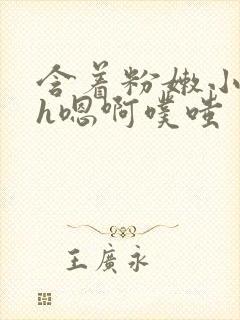 含着粉嫩小
h嗯啊噗嗤
王廣永